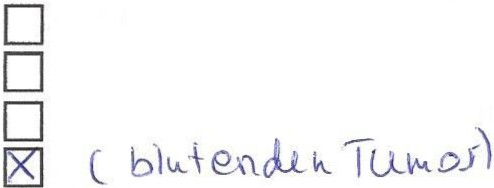 ( blutenden Tumor)